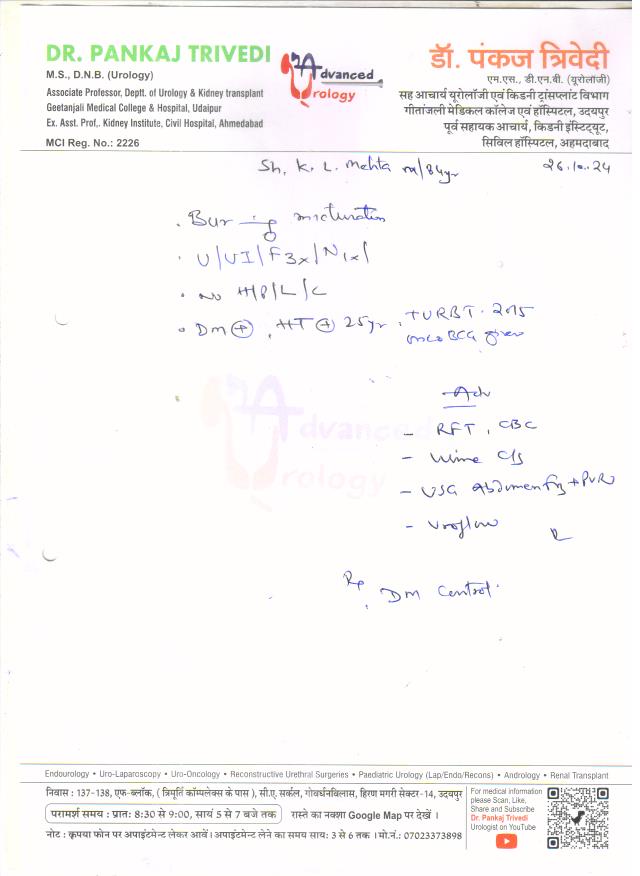 DR. PANKAJ TRIVEDI
M.S., D.N.B. (Urology)
Associate Professor, Deptt. of Urology & Kidney transplant
Geetanjali Medical College & Hospital, Udaipur
Ex. Asst. Prof,. Kidney Institute, Civil Hospital, Ahmedabad
MCI Reg. No.: 2226
Advanced
Urology
डॉ. पंकज त्रिवेदी
एम.एस., डी.एन.बी. (यूरोलॉजी)
सह आचार्य यूरोलॉजी एवं किडनी ट्रांसप्लांट विभाग
गीतांजली मेडिकल कॉलेज एवं हॉस्पिटल, उदयपुर
पूर्व सहायक आचार्य, किडनी इंस्टिट्यूट,
सिविल हॉस्पिटल, अहमदाबाद
Sh. K. L. Mehta m/84yr 26.10.24
. Burning micturation
. U/UI/F3x/N1x/
. No H/P/L/C
. DM (+), HT (+) 25yr, TURBT. 2015
BCG given
Adv
- RFT, CBC
- Urine C/S
- USG Abdomen + PVR
- Uroflow
Advanced
Urology
Rp
. DM Control.
Endourology • Uro-Laparoscopy • Uro-Oncology • Reconstructive Urethral Surgeries • Paediatric Urology (Lap/Endo/Recons) • Andrology • Renal Transplant
निवास : 137-138, एफ-ब्लॉक, ( त्रिपूर्ति कॉम्पलेक्स के पास ), सी.ए. सर्कल, गोवर्धनविलास, हिरण मगरी सेक्टर-14, उदयपुर
परामर्श समय : प्रातः 8:30 से 9:00, सायं 5 से 7 बजे तक रास्ते का नक्शा Google Map पर देखें ।
नोट : कृपया फोन पर अपाइंटमेन्ट लेकर आवें। अपाइंटमेन्ट लेने का समय सायः 3 से 6 तक । मो.नं.: 07023373898
For medical information
please Scan, Like,
Share and Subscribe
Dr. Pankaj Trivedi
Urologist on YouTube